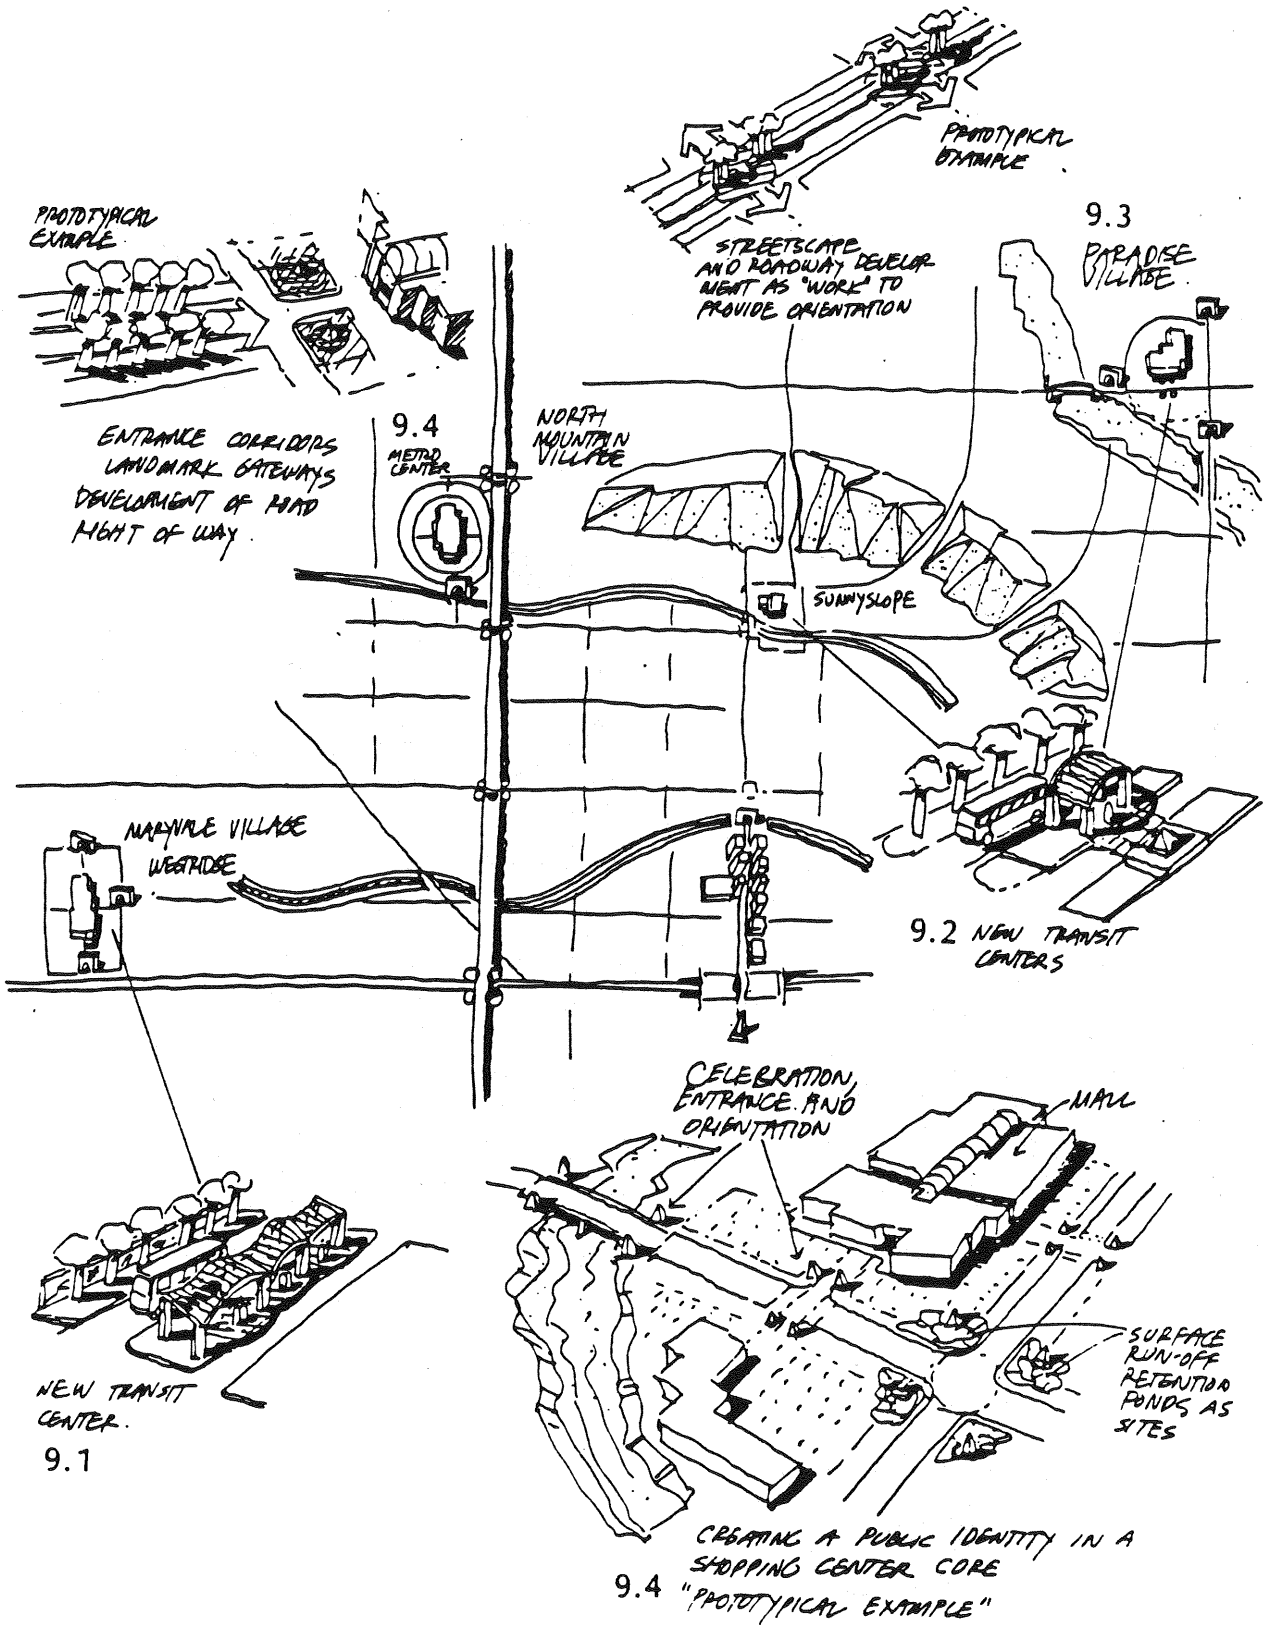 PROTOTYPICAL
EXAMPLE
9.3
PARADISE
VILLAGE
STREETSCAPE
AND ROADWAY DEVELOP
MENT AS "WORK" TO
PROVIDE ORIENTATION
PROTOTYPICAL
EXAMPLE
ENTRANCE CORRIDORS
LANDMARK GATEWAYS
DEVELOPMENT OF ROAD
RIGHT OF WAY.
9.4
METRO
CENTER
NORTH
MOUNTAIN
VILLAGE
SUNNYSLOPE
MARYVALE VILLAGE
WESTRIDGE
9.2 NEW TRANSIT
CENTERS
NEW TRANSIT
CENTER.
9.1
CELEBRATION,
ENTRANCE AND
ORIENTATION
MALL
SURFACE
RUN-OFF
RETENTION
PONDS AS
SITES
CREATING A PUBLIC IDENTITY IN A
SHOPPING CENTER CORE
9.4 "PROTOTYPICAL EXAMPLE"